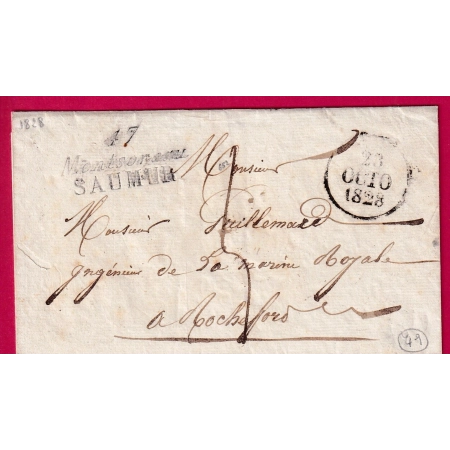 1828
47
Montsoreau
SAUMUR
23
OCTO
1828
Monsieur
Monsieur Taillemard
Ingénieur de La marine Royale
a Rocheford
49